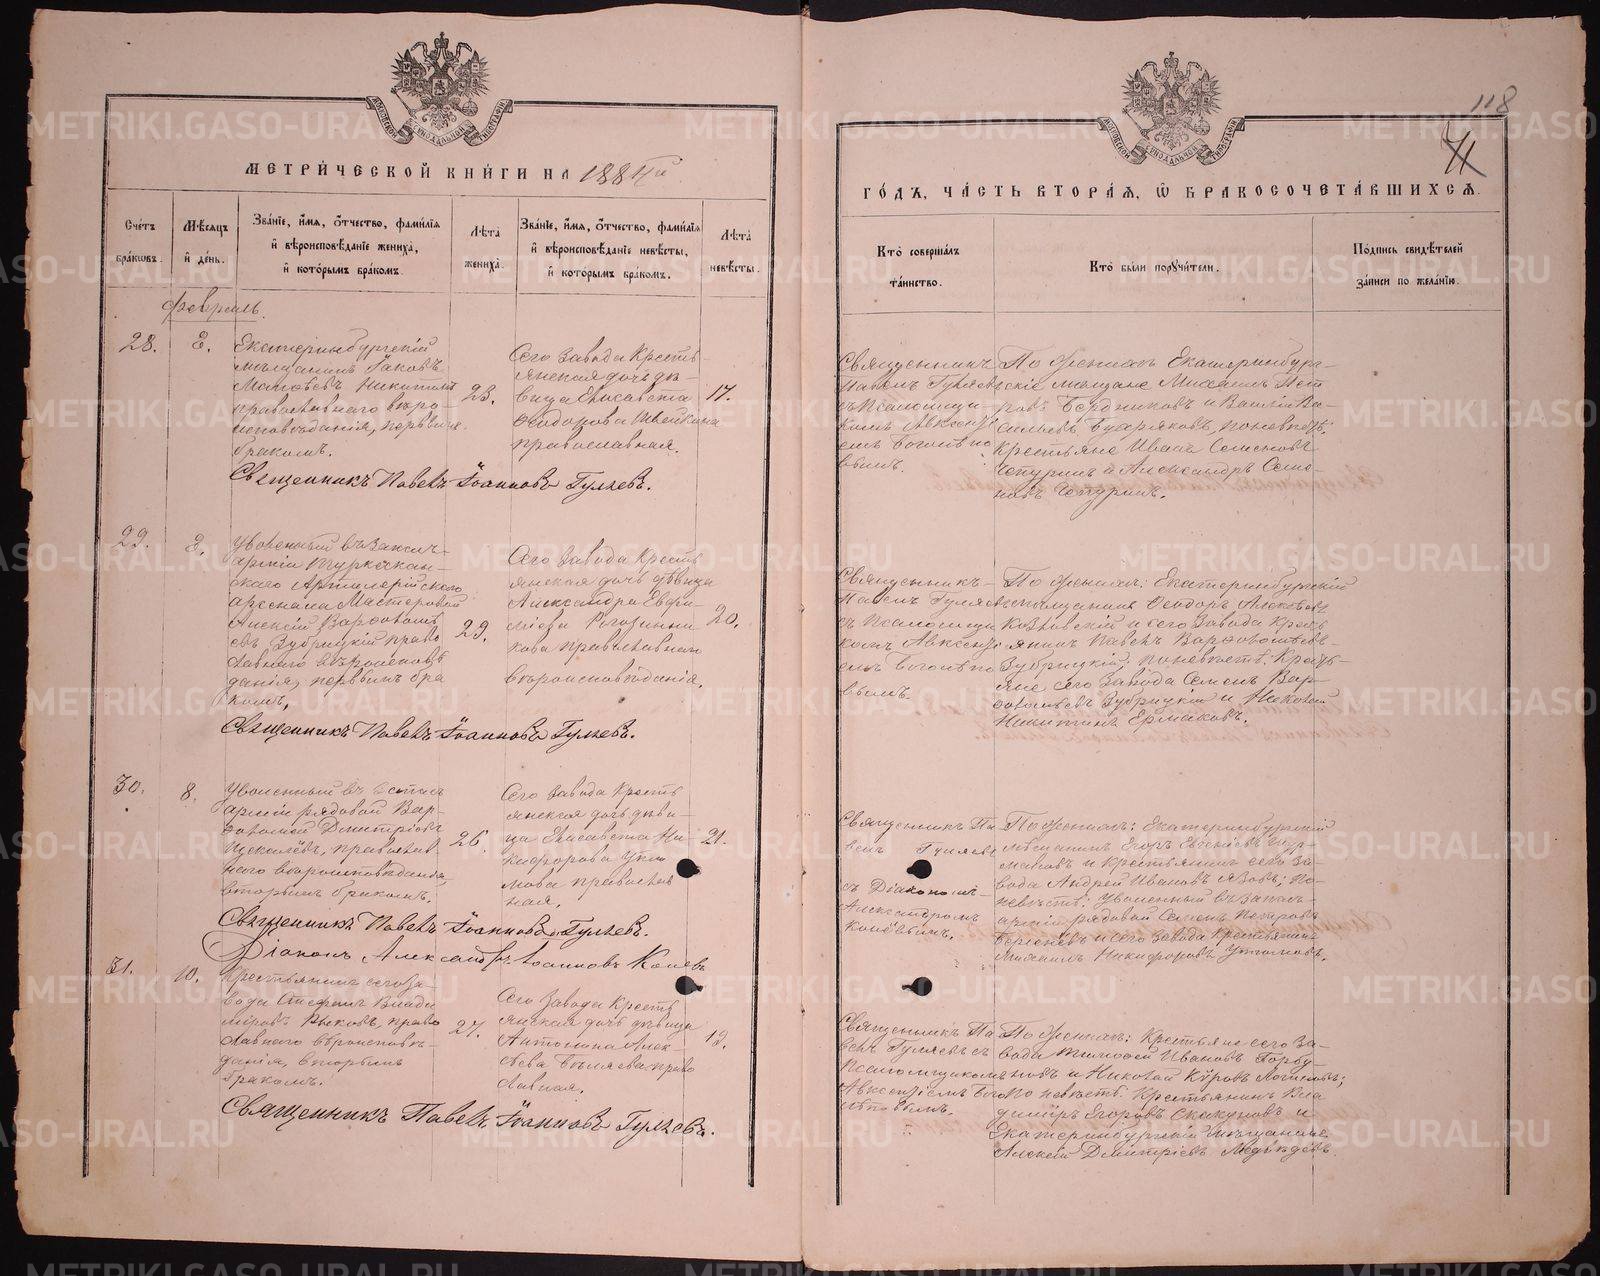 МОСКОВСКОЙ СѴНОДАЛЬНОЙ ТИПОГРАФІИ
МЕТРИЧЕСКОЙ КНИГИ НА 1884й
Счетъ браковъ.
Мѣсяцъ и день.
Званіе, имя, отчество, фамилія
и вѣроисповѣданіе жениха,
и которымъ бракомъ.
Лѣта жениха.
Званіе, имя, отчество, фамилія
и вѣроисповѣданіе невѣсты,
и которымъ бракомъ.
Лѣта невѣсты.
Февраль.
28.
Екатеринбургскій
мѣщанинъ Іаковъ
православнаго вѣро-
исповѣданія, первымъ
бракомъ.
23.
Сего завода кресть-
янская дочь дѣ-
вица Елисавета
Ѳеодорова
православная.
17.
Священникъ Павелъ Іоанновъ Гуляевъ.
29.
Уволенный въ запасъ
арміи Туркестан-
скаго Артилерійскаго
арсенала Мастеровой
Алексѣй Варѳоломѣ-
евъ Зубрицкій право-
славнаго вѣроисповѣ-
данія, первымъ бра-
комъ,
29.
Сего завода кресть-
янская дочь дѣвица
Александра Евфи-
міева Рогозинни-
кова православнаго
вѣроисповѣданія.
20.
Священникъ Павелъ Іоанновъ Гуляевъ.
30.
8.
Уволенный въ
арміи рядовой Вар-
ѳоломей Димитріевъ
православ-
наго вѣроисповѣданія,
вторымъ бракомъ.
26.
Сего завода кресть-
янская дочь дѣви-
ца Елисавета Ни-
кифорова
православ-
ная.
21.
Священникъ Павелъ Іоанновъ Гуляевъ.
Діаконъ Александръ Іоанновъ
31.
10.
Крестьянинъ сего за-
вода Стефанъ Влади-
міровъ право-
славнаго вѣроисповѣ-
данія, вторымъ
бракомъ.
27.
Сего завода кресть-
янская дочь дѣвица
Антонина Алек-
сѣева Бѣляева право-
славная.
19.
Священникъ Павелъ Іоанновъ Гуляевъ.
118
МОСКОВСКОЙ СѴНОДАЛЬНОЙ ТИПОГРАФІИ
ГОДЪ, ЧАСТЬ ВТОРАЯ, Ѡ БРАКОСОЧЕТАВШИХСЯ.
Кто совершалъ таинство.
Кто были поручители.
Подпись свидѣтелей записи по желанію.
Священникъ
Павелъ Гуляевъ
съ Псаломщи-
комъ Авксенті-
емъ Боголѣпо-
вымъ.
По женихѣ Екатеринбург-
скіе мѣщане Михаилъ Пет-
ровъ и Василій Ва-
сильевъ по невѣстѣ:
Крестьяне Иванъ Семеновъ
Чепуринъ и Александръ Семе-
новъ Чепуринъ.
Священникъ
Павелъ Гуляевъ
съ Псаломщи-
комъ Авксенті-
емъ Боголѣпо-
вымъ.
По женихѣ: Екатеринбургскій
мѣщанинъ Ѳеодоръ Алексѣевъ
Козловскій и сего завода крест-
янинъ Павелъ Варѳоломѣевъ
Зубрицкій; по невѣстѣ: Кресть-
яне сего завода Семенъ Вар-
ѳоломѣевъ Зубрицкій и Николай
Никитинъ Ермаковъ.
Священникъ Па-
велъ Гуляевъ
съ Діакономъ
Александромъ
По женихѣ: Екатеринбургскій
мѣщанинъ Егоръ
и крестьянинъ сего за-
вода Андрей Ивановъ Язовъ; по
невѣстѣ: уволенный въ запасъ
арміи рядовой Семенъ Петровъ
и сего завода крестьянинъ
Михаилъ Никифоровъ
Священникъ Па-
велъ Гуляевъ съ
Псаломщикомъ
Авксентіемъ Бого-
лѣповымъ.
По женихѣ: Крестьяне сего за-
вода Тимоѳей Ивановъ Горбу-
новъ и Николай
по невѣстѣ: Крестьянинъ Вла-
диміръ Егоровъ Скакуновъ и
Екатеринбургскій мѣщанинъ
Алексѣй Димитріевъ Медвѣдевъ.
METRIKI.GASO-URAL.RU